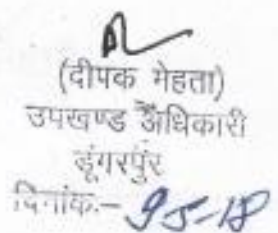 (दीपक मेहता)
उपखण्ड अधिकारी
डूंगरपुर
दिनांक:- 9-5-18